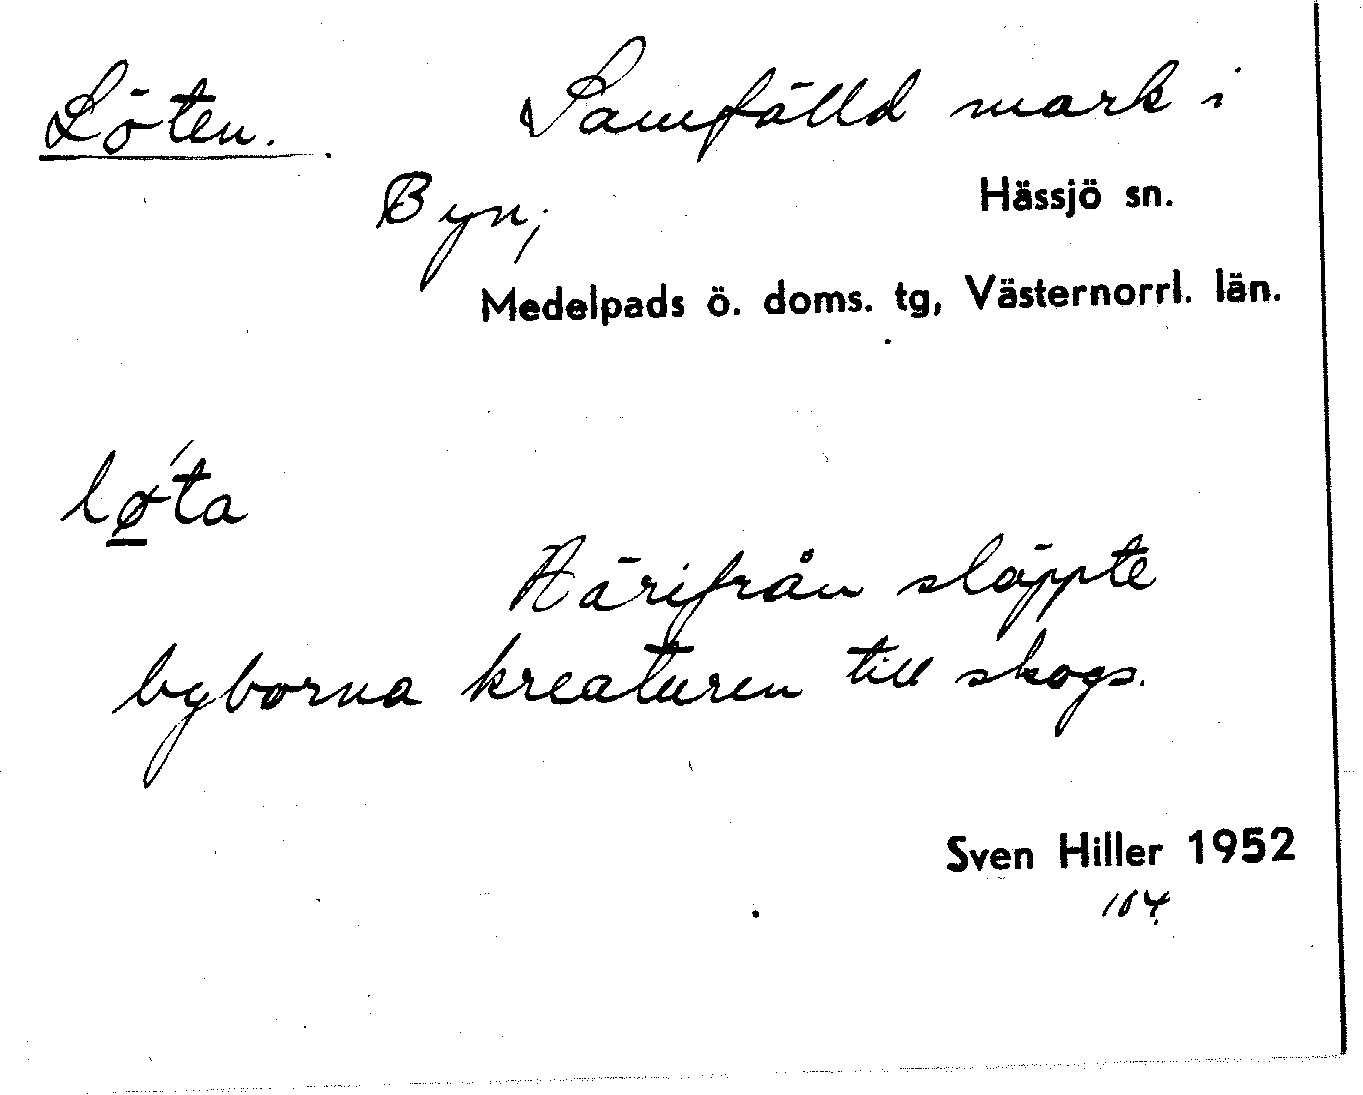 Löten. Samfälld mark i
Byn, Hässjö sn.
Medelpads ö. doms. tg, Västernorrl. län.
lǿ̲ta
Härifrån släppte
byborna kreaturen till skogs.
Sven Hiller 1952
104